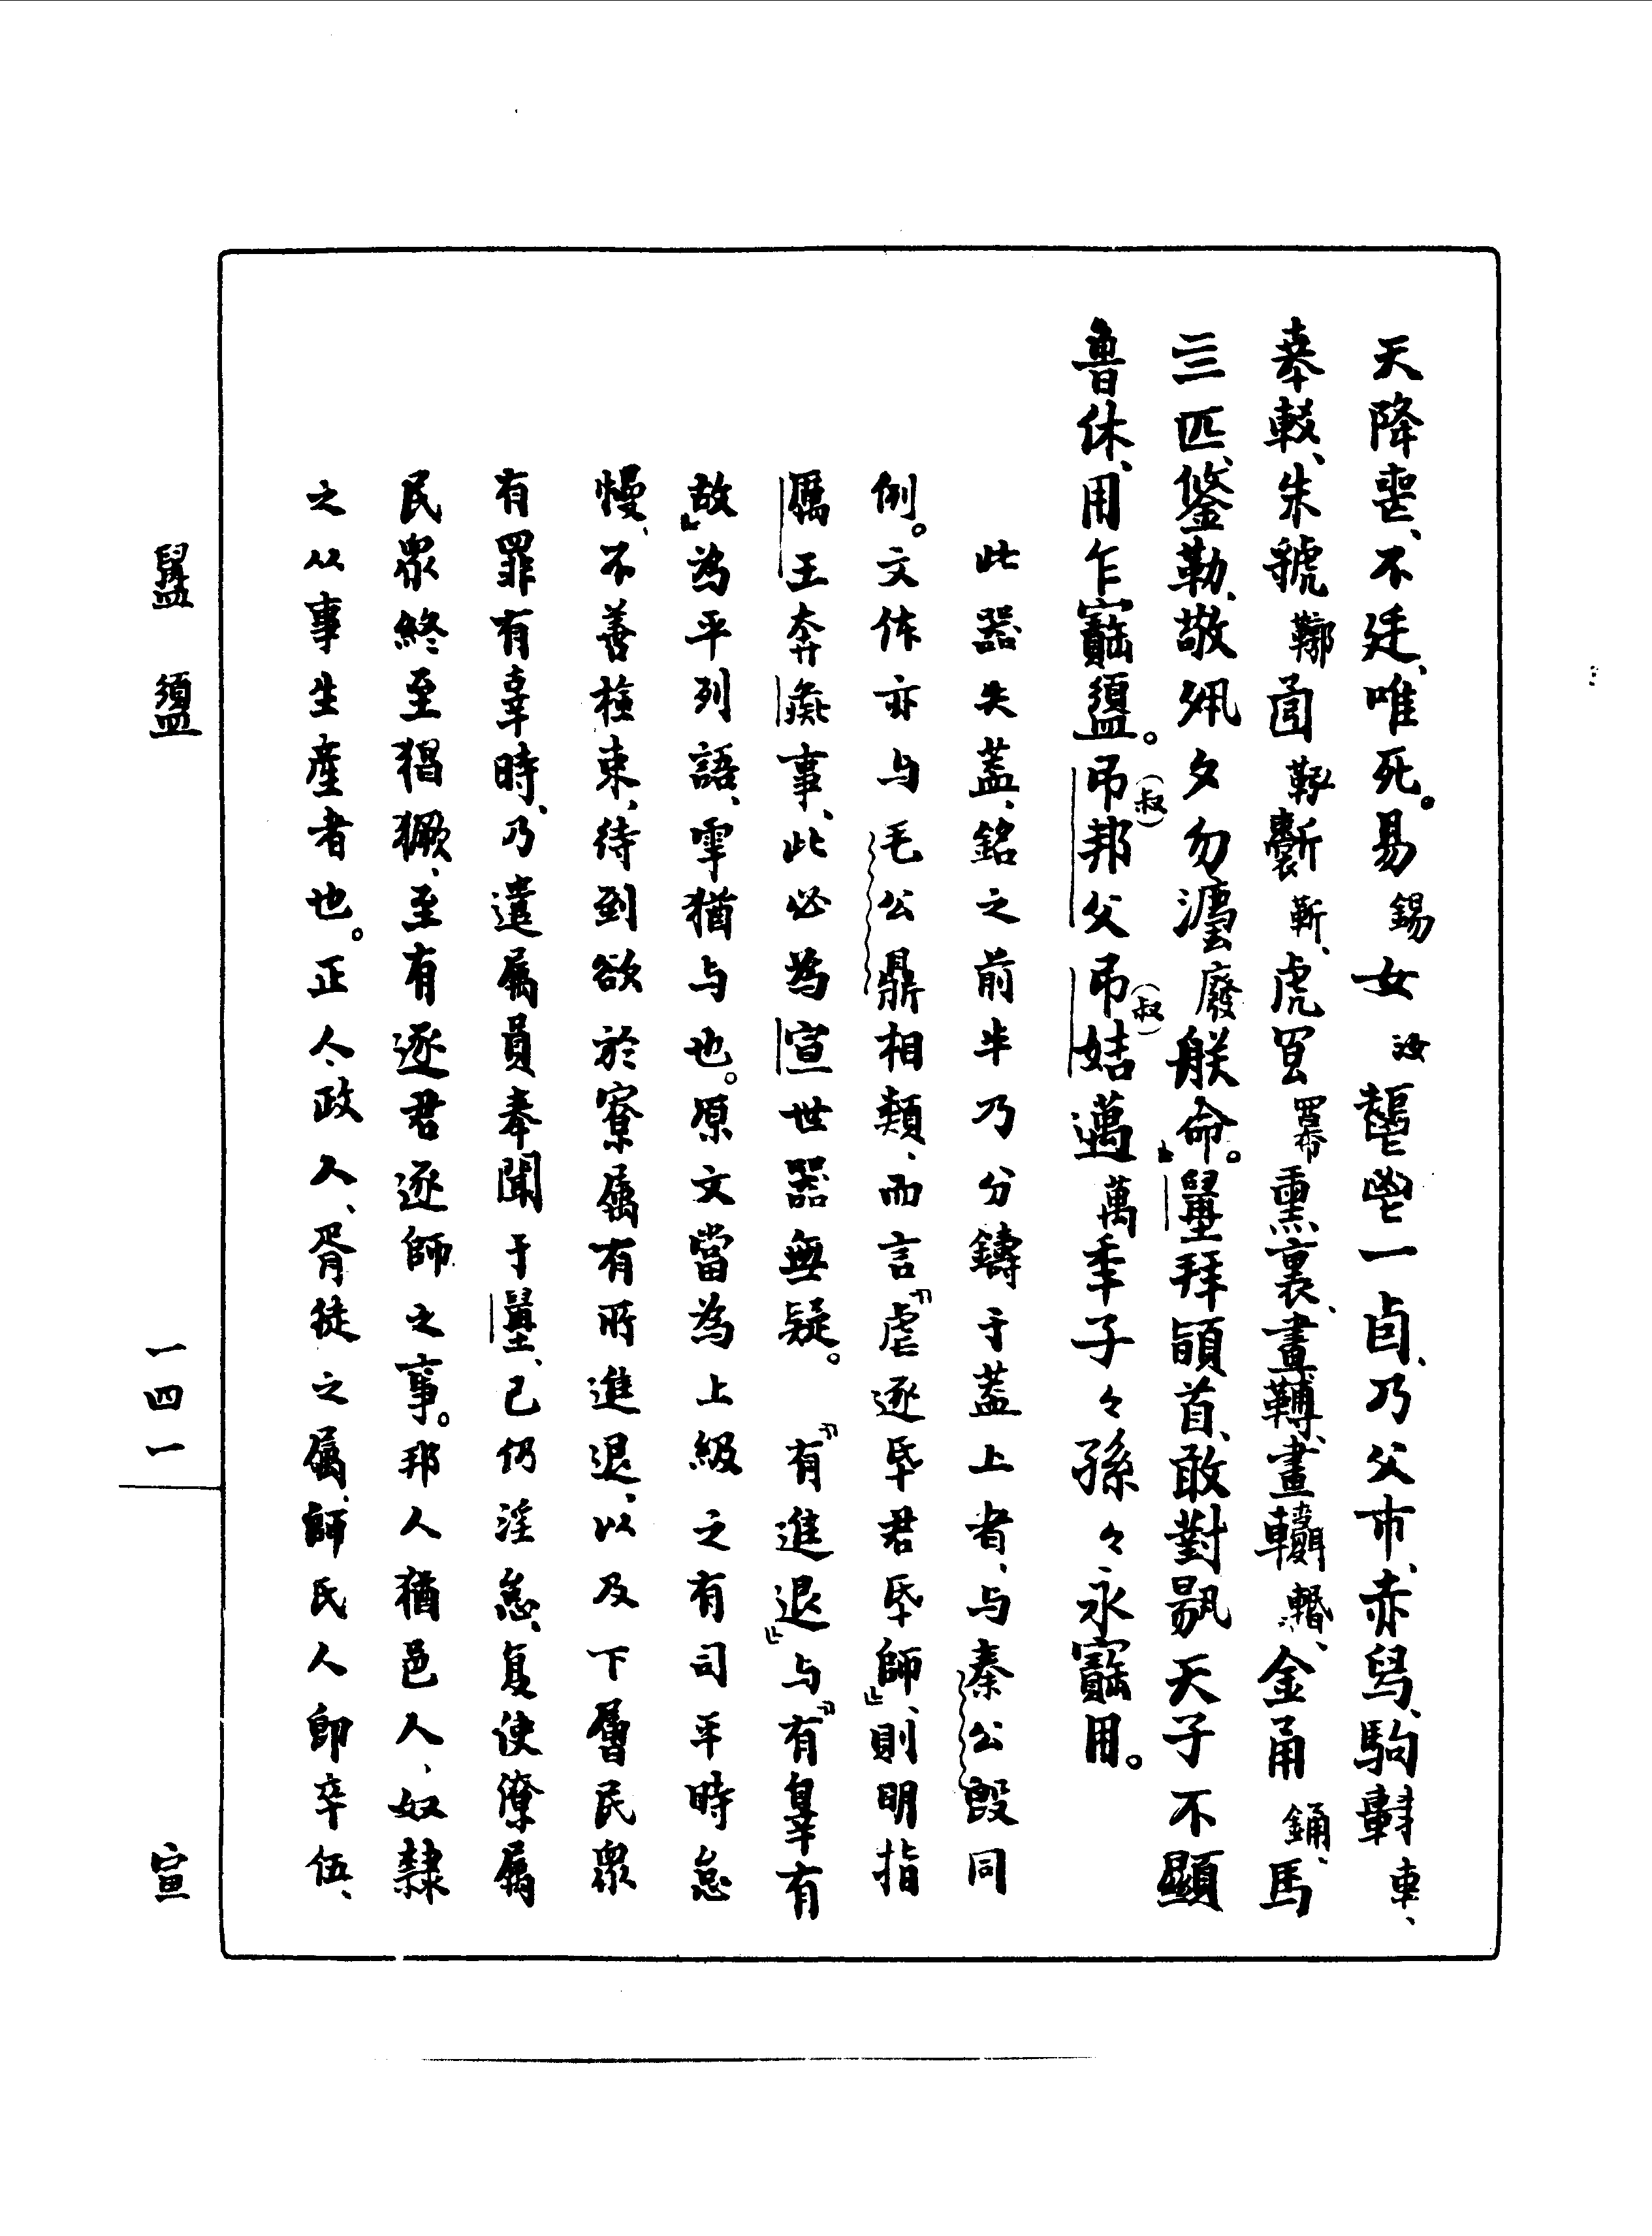 天降喪、不廷、唯死。易錫女汝鬯一卣、乃父巿、赤舄、駒車、
𠦪較、朱虢鞹靳、虎冟冪熏裏、畫轉、畫、金甬銿、馬
亖匹、鋚勒、敬夙夕勿灋廢朕命。』拜䭫首、敢對揚天子不顯
魯休、用乍寶盨。弔(叔)邦父弔(叔)姞邁萬年子々孫々永寶用。
此器失蓋、銘之前半乃分鑄于蓋上者、与秦公𣪘同
例。文体亦与毛公鼎相類、而言『虐逐厥君厥師』、則明指
厲王奔彘事、此必為宣世器無疑。『有進退』与『有辠有
故』為平列語、雩猶与也。原文當為上級之有司平時怠
慢、不善檢束、待到欲於寮属有所進退、以及下層民衆
有罪有辜時、乃遣属員奉聞于、己仍淫怠、复使僚属
民衆終至猖獗、至有逐君逐師之事。邦人猶邑人、奴隸
之从事生產者也。正人、政人、胥徒之属、師氏人卽卒伍、
盨
一四一
宣